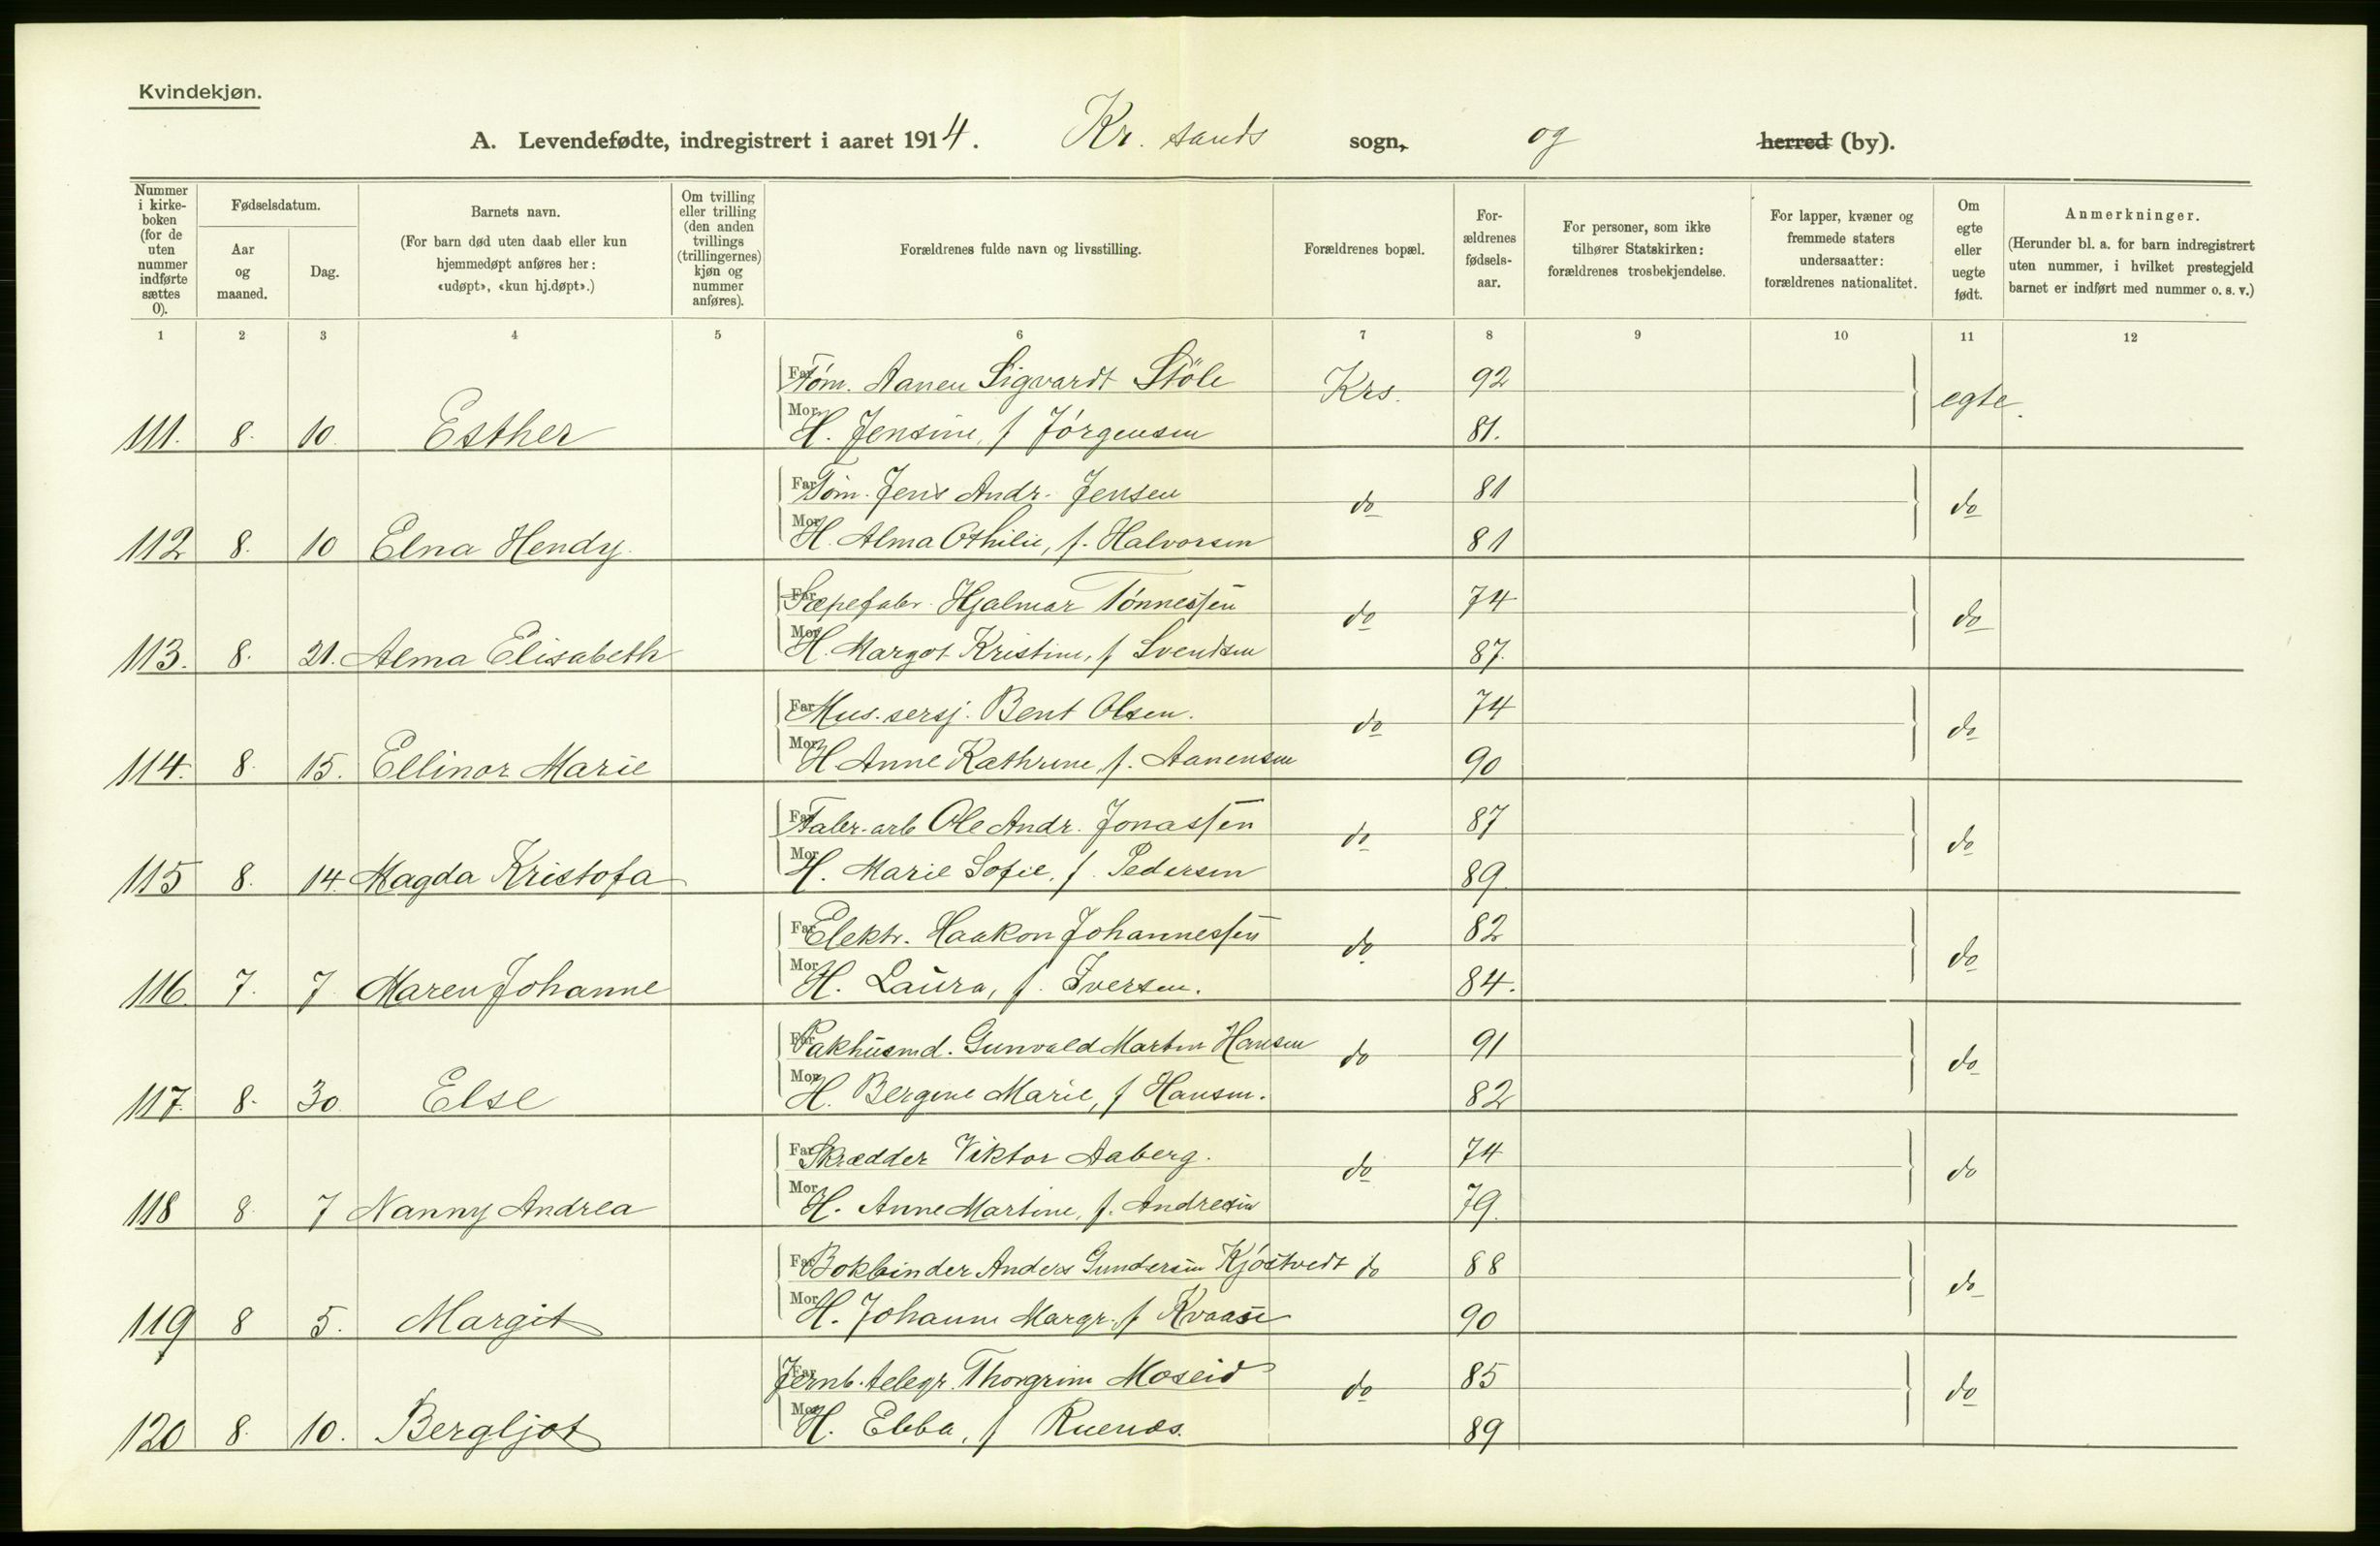 Kvindekjøn.
A. Levendefødte, indregistrert i aaret 1914. Kr. sands sogn, og herred (by).
Nummer i kirke-boken (for de uten nummer indførte sættes 0).
Fødselsdatum.
Aar og maaned.
Dag.
Barnets navn.
(For barn død uten daab eller kun hjemmedøpt anføres her: «udøpt», «kun hj.døpt».)
Om tvilling eller trilling (den anden tvillings (trillingernes) kjøn og nummer anføres).
Forældrenes fulde navn og livsstilling.
Forældrenes bopæl.
For-ældrenes fødsels-aar.
For personer, som ikke tilhører Statskirken: forældrenes trosbekjendelse.
For lapper, kvæner og fremmede staters undersaatter: forældrenes nationalitet.
Om egte eller uegte født.
Anmerkninger.
(Herunder bl. a. for barn indregistrert uten nummer, i hvilket prestegjeld barnet er indført med nummer o. s. v.)
1 2 3 4 5 6 7 8 9 10 11 12
Far Tøm. Aanen Sigvardt Støle Krs. 92 egte.
111. 8. 10. Esther Mor H. Jensine, f Jørgensen 81.
Far Tøm. Jens Andr. Jensen do 81 do
112 8. 10 Elna Hendy. Mor H. Alma Othilie, f. Halvorsen 81
Far Sæpefabr. Hjalmar Tønnessen do 74 do
113. 8. 21. Alma Elisabeth Mor H. Margot Kristine, f Svendsen 87.
Far Mus. sersj. Bent Olsen. do 74 do
114. 8. 15. Ellinor Marie Mor H Anne Kathrine, f. Aanensen 90
Far Fabr. arb Ole Andr. Jonassen do 87 do
115 8. 14. Magda Kristofa Mor H. Marie Sofie, f. Pedersen 89.
Far Elektr. Haakon Johannessen do 82 do
116. 7. 7. Maren Johanne Mor H. Laura, f. Iversen. 84.
Far Pakhusmd. Gunvald Martin Hansen do 91 do
117. 8. 30. Else Mor H. Bergine Marie, f Hansen. 82
Far Skrædder Viktor Aaberg. do 74 do
118 8. 7 Nanny Andrea Mor H. Anne Martine, f. Andresen 79.
Far Bokbinder Anders Gundersen Kjøstvedt do 88 do
119 8 5. Margit Mor H. Johanne Margr. f Kvaase 90
Far Jernb. telegr. Thorgrim Moseid do 85 do
120 8. 10. Bergljot Mor H. Ebba, f 89